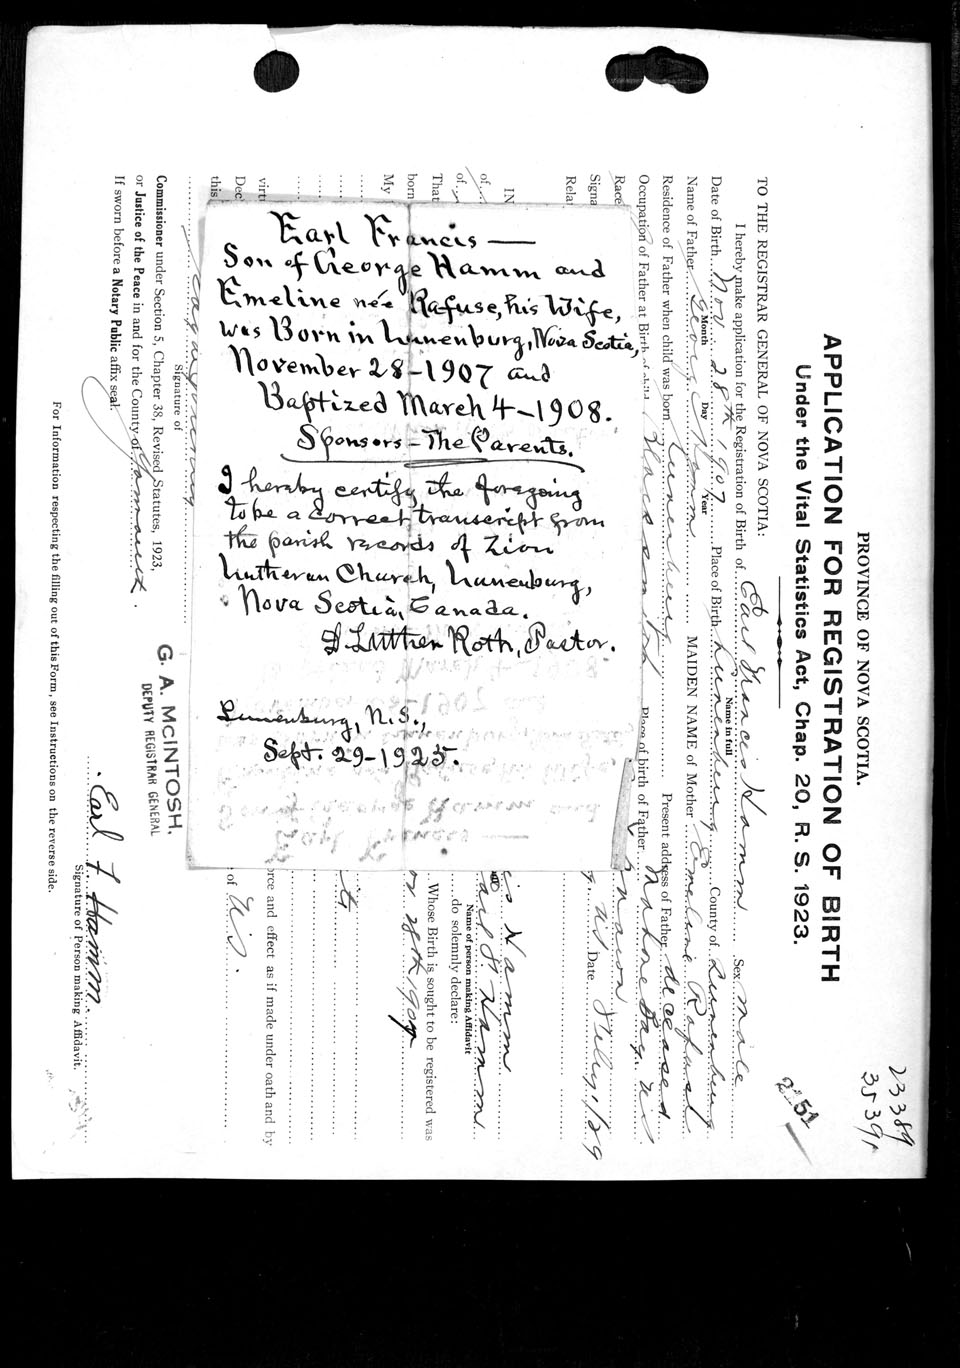 23389
35391
2151
PROVINCE OF NOVA SCOTIA.
APPLICATION FOR REGISTRATION OF BIRTH
Under the Vital Statistics Act, Chap. 20, R. S. 1923.
TO THE REGISTRAR GENERAL OF NOVA SCOTIA:
I hereby make application for the Registration of Birth of Earl Francis Hamm Sex male
Name in full
Date of Birth Nov. 28th 1907 Place of Birth Lunenburg County of Lunenburg
Month Day Year
Name of Father George Hamm MAIDEN NAME of Mother Emeline Rafuse
Residence of Father when child was born Lunenburg Present address of Father deceased
Occupation of Father at Birth of child Place of birth of Father Mahone Bay. N.S.
Race
Signa Date Feby. 1/29
Rela
IN is Hamm
of Earl F. Hamm
Name of person making Affidavit
of do solemnly declare:
That Whose Birth is sought to be registered was
born on 28th 1907
My
virtu orce and effect as if made under oath and by
Dec of N.S.
this
Signature of
Commissioner under Section 5, Chapter 38, Revised Statutes, 1923,
or Justice of the Peace in and for the County of Yarmouth.
If sworn before a Notary Public affix seal.
G. A. McINTOSH.
DEPUTY REGISTRAR GENERAL
Earl F Hamm.
Signature of Person making Affidavit.
For Information respecting the filling out of this Form, see Instructions on the reverse side.
Earl Francis —
Son of George Hamm and
Emeline née Rafuse, his Wife,
was Born in Lunenburg, Nova Scotia,
November 28 - 1907 and
Baptized March 4 - 1908.
Sponsors - The Parents.
I hereby certify the foregoing
to be a correct transcript from
the parish records of Zion
Lutheran Church, Lunenburg,
Nova Scotia, Canada.
D. Luther Roth, Pastor.
Lunenburg, N.S.,
Sept. 29 - 1925.